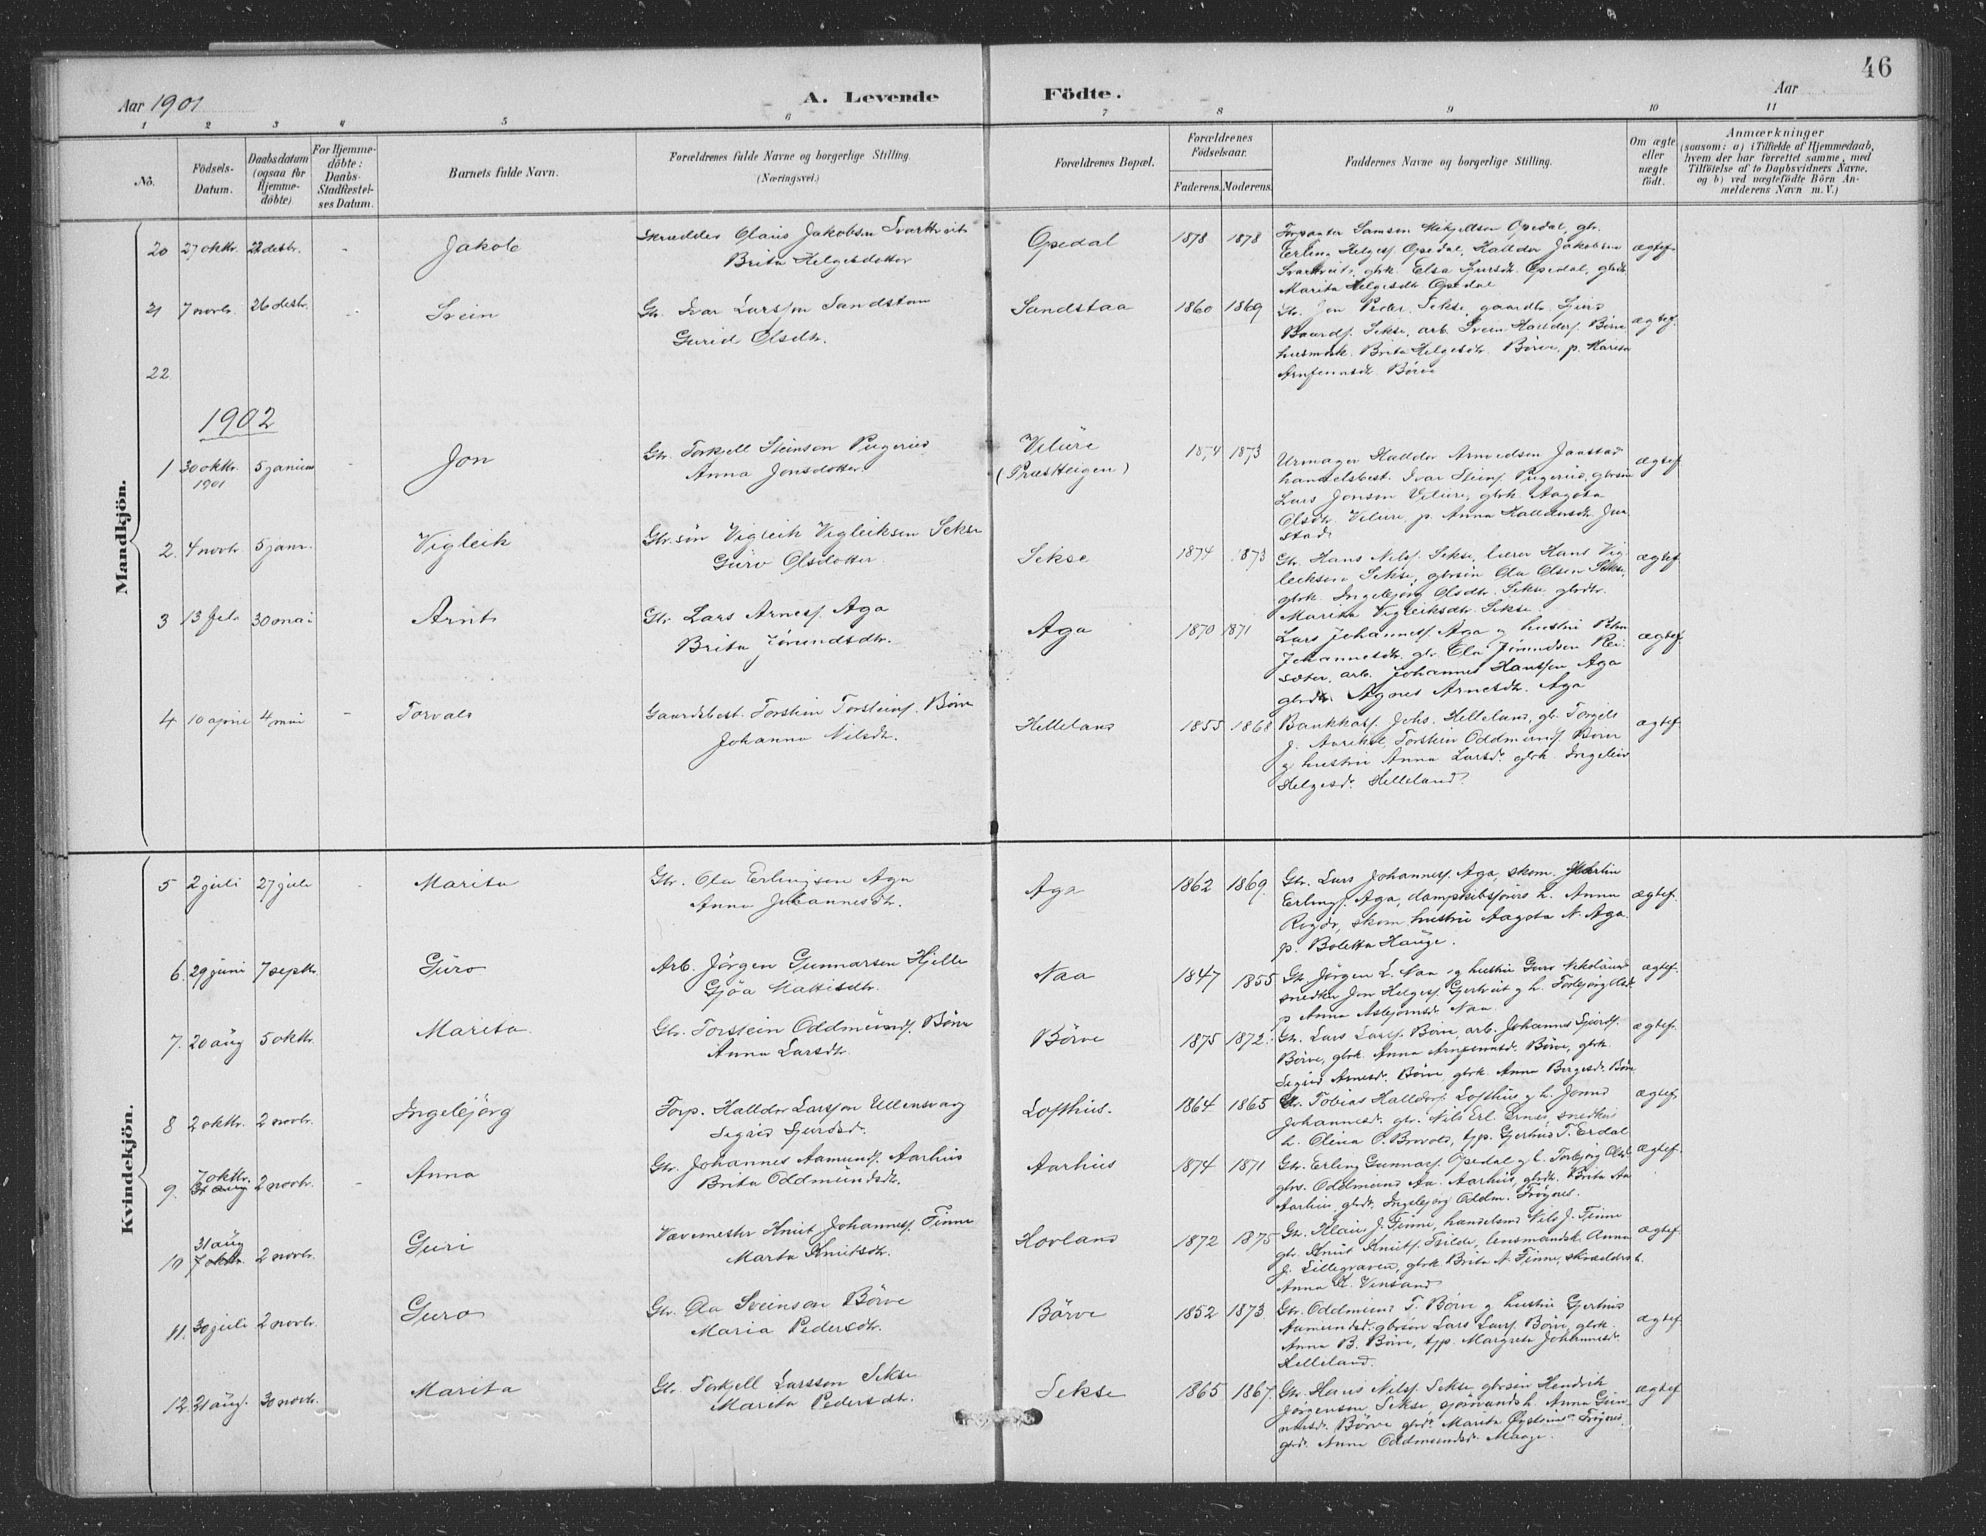 46
Aar 1901
A. Levende Födte.
Aar
1 2 3 4 5 6 7 8 9 10 11
No.
Födsels-Datum.
Daabsdatum (ogsaa for Hjemme-döbte)
For Hjemme-döbte: Daabs-Stadfestel-ses Datum.
Barnets fulde Navn.
Forældrenes fulde Navne og borgerlige Stilling.
(Næringsvei.)
Forældrenes Bopæl.
Forældrenes Födselsaar.
Faderens. Moderens.
Faddernes Navne og borgerlige Stilling.
Om ægte eller uægte födt.
Anmærkninger
(saasom: a) i Tilfælde af Hjemmedaab,
hvem der har forrettet samme, med
Tilföielse af to Daabsvidners Navne,
og b) ved uægtefödte Börn An-
melderens Navn m. V.)
Mandkjön.
20 27 oktr. 22 desbr. - Jakob
Skrædder Olaus Jakobsen Svartveit
Brita Helgesdotter
Opedal 1878 1878
Forpanter Samson Mikjellsen Opedal, gbr.
Erling Helgesf. Opedal, Halldor Jakobsen
Svartveit, gbrk. Elsa Sjursdr. Opedal, gbrdr.
Marita Helgesdtr Opedal
ægtef.
21 7 novbr. 26 desbr. - Svein
Gbr. Ivar Larsson Sandstaa
Gurid Olsdtr.
Sandstaa 1860 1869
Gbr. Jon Peder. Sekse, gaardbr. Sjurd
Baardsf. Sekse, arb. Svein Halldorsf. Börve
husmdsk. Brita Helgesdtr. Börve, p. Marita
Arnfinnsdr. Börve
ægtef.
22
1902
1 30 oktr. 1901 5 januar - Jon
Gbr. Torkjell Steinson Pugerud
Anna Jonsdotter
Vilure
(Præstteigen)
1874 1873
Urmager Halldor Arnvedsen Jaastad
handelsbest. Ivar Steins. Pugerud, gbrsön
Lars Jonson Vilure, gbrk. Aagota
Olsdtr. Vilure, p. Anna Halldorsdtr. Jaa-
stad
ægtef.
2. 4 novbr 5 janr. Vigleik
Gbr.sön Vigleik Vigleiksen Sekse
Guro Olsdotter
Sekse 1874 1873
Gbr. Hans Nilsf. Sekse, lærer Hans Vig-
leiksen Sekse, gbrsön Ola Olsen Sekse,
gbrk. Ingebjörg Olsdtr. Sekse, gbrdtr.
Marita Vigleiksdtr. Sekse.
ægtef.
3 13 feb 30 mai Arnt
Gbr. Lars Arnesf. Aga
Brita Jörundsdtr.
Aga 1870 1871
Lars Johannesf. Aga g hustru Brita
Johannesdtr. gbr. Ola Jörundsen Rei-
sæter, arb. Johannes Hansson Aga
gbrdtr. Agnes Arnesdtr. Aga
ægtef
4 10 april 4 mai - Torvald
Gaardsbest. Torstein Torsteinsf. Börve
Johanna Nilsdtr.
Helleland 1855 1868
Bankkass. Johs. Helleland, gb. Torgils
J. Aarekol, Torstein Oddmundsf Börve
g hustru Anna Larsdr. gbrk. Ingeleiv
Helgesdr. Helleland.
ægtef.
Kvindekjön.
5 2 juli 27 juli - Marita
Gbr. Ola Erlingson Aga
Anna Johannesdtr.
Aga 1862 1869.
Gbr. Lars Johannesf. Aga, skom. Martin
Erlingsf. Aga, dampskibsförers h. Anna
Rogde, skom. hustru Aagota N. Aga
p. Boletta Hauge.
ægtef.
6. 29 juni 7 septr. Guro
Arb. Jörgen Gunnarsen Hjelle
Gjöa Mattisdtr.
Naa 1847 1855
Gbr Jörgen L. Naa g hustru Guro Nikolaisd.
snedker Jon Helgesf. Gjertveit g h. Torbjörg Olsdr.
p Anna Asbjörnsdr. Naa.
ægtef.
7. 20 aug 5 oktr. Marita
Gbr. Torstein Oddmundsf. Börve
Anna Larsdtr.
Börve 1875 1872.
Gbr. Lars Larsf. Börve, arb. Johannes Sjurdsf.
Börve, gbrk. Anna Arnfinnsdr. Börve, gbrk.
Sigrid Arnesdr. Börve gbrk. Anna Bergesdr. Börve
ægtef.
8 2 oktr. 2 novbr. Ingebjörg
Forp. Halldor Larsson Ullensvang
Sigrid Sjurdsdr.
Lofthus. 1864 1865
Gbr. Tobias Halldorsf. Lofthus g h. Jonna
Johannesdr. gbr. Nils Erl. Ernes, snedkers
h. Olina P. Brovold, tjp. Gjertrud T. Erdal
ægtef.
9. 7 oktr. 31 aug 2 novbr. - Anna
Gbr. Johannes Aamundsf. Aarhus
Brita Oddmundsdtr.
Aarhus 1874 1871
Gbr. Erling Gunnarsf. Opedal g h. Torbjörg Olsd.
gbrs. Oddmund Aa. Aarhus, gbrdtr. Brita Aa.
Aarhus, gbrdt. Ingebjörg Oddm. Fröynes.
ægtef.
10 31 aug 7 oktr 2 novbr. Guri
Vævemester Knut Johannesf. Finne
Marta Knutsdtr.
Hovland 1872 1875
Gbr. Klaus J. Finne, handelsmd Nils J. Finne
gbr. Knut Knutsf. Tsilde, lensmandsk. Anna
J. Lillegraven, gbrk. Brita N. Finne, skræddersk.
Anna K. Vinsand
ægtef.
11. 30 juli 2 novbr. Guro
Gbr. Ola Sveinson Börve
Maria Pedersdtr.
Börve 1852 1873.
Gbr. Oddmund T. Börve g hustru Gjertrud
Aamundsd. gbrsön Lars Larsf. Börve, gbrk.
Anna B. Börve, tjp. Margreta Johannesd.
Helleland.
ægtef
12. 31 aug. 30 novbr. Marita
Gbr Torkjell Larsson Sekse
Marita Pedersdtr.
Sekse 1865 1867.
Gbr. Hans Nilsf. Sekse, gbrsön Hendrik
Jörgenson Sekse, sjömands h. Anna Gun-
narsd. Börve, gbrdr. Marita Öysteinsdr. Fröynes,
gbrdr. Anna Oddmundsdr. Maage.
ægtef